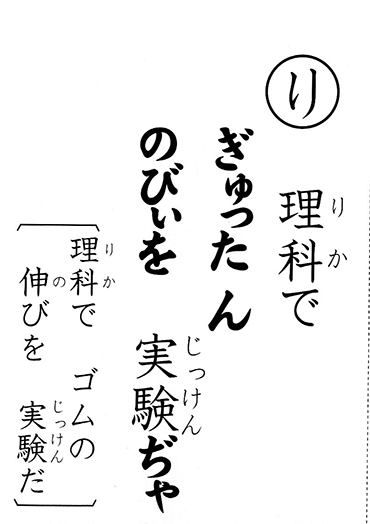 り
理科で
りか
ぎゅったん
のびぃを 実験ぢゃ
じっけん
理科で ゴムの
りか
伸びを 実験だ
の じっけん